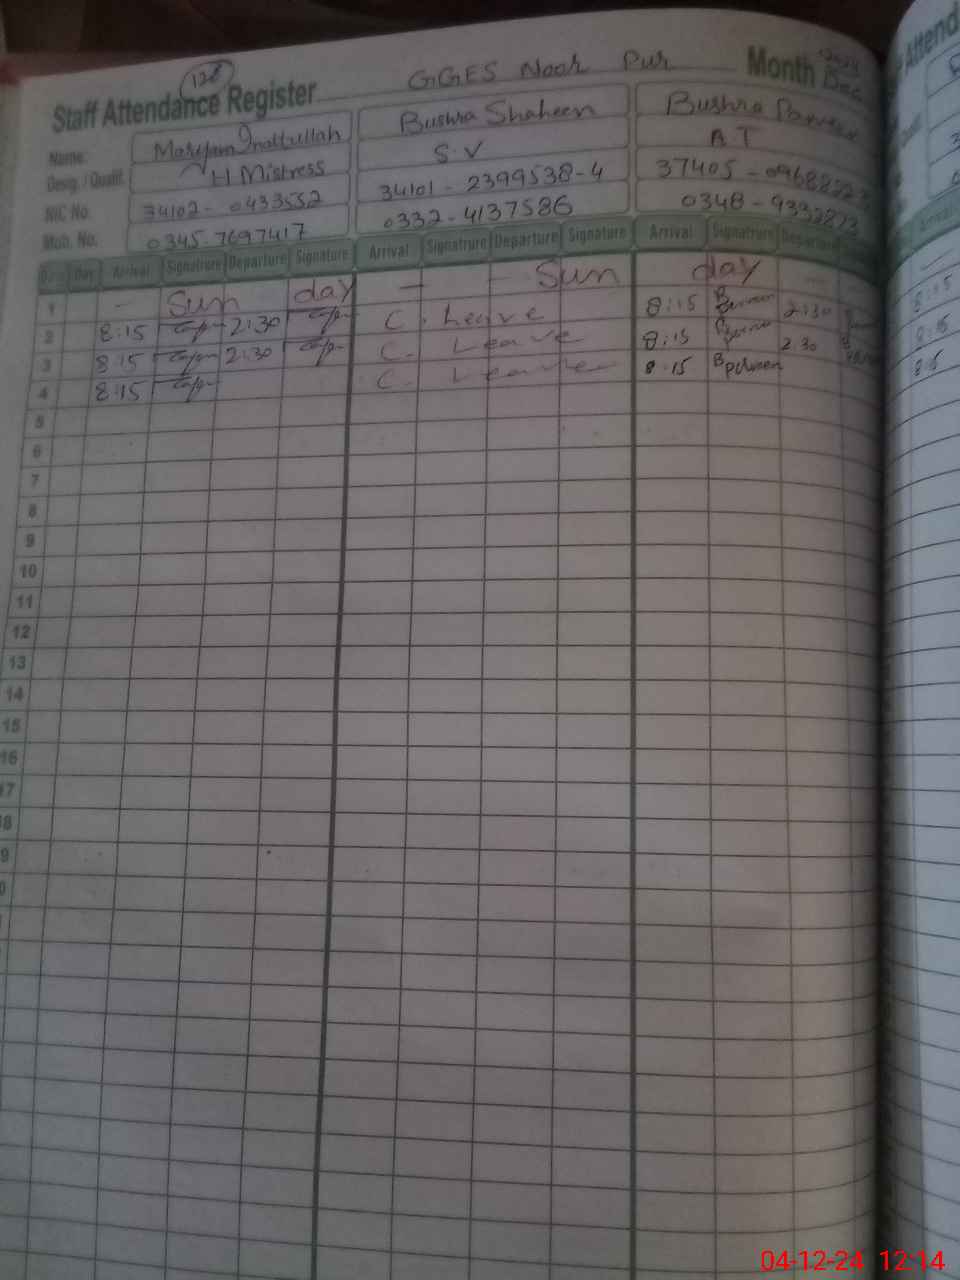 128
GGES Noor Pur
Month Dec 2024
Staff Attendance Register
Name: Maryam Inaitullah Bushra Shaheen Bushra Parveen
Desig. / Qualif. H Mistress S.V A T
NIC No. 34102 - 0433552 34101 - 2399538-4 37405 -
Mob. No. 0345.7697417 0332-4137586 0348 - 9332873
Date Day Arrival Signatrure Departure Signature Arrival Signatrure Departure Signature Arrival Signatrure Departure
1 - Sun day - - Sun day
2 8:15 2:30 C. Leave 8:15 2:30
3 8:15 2:30 C. Leave 8:15 2:30
4 8:15 C. Leave 8.15
5
6
7
8
9
10
11
12
13
14
15
16
17
18
19
Attend
Arrival
8:15
8:15
8:15
04-12-24 12:14